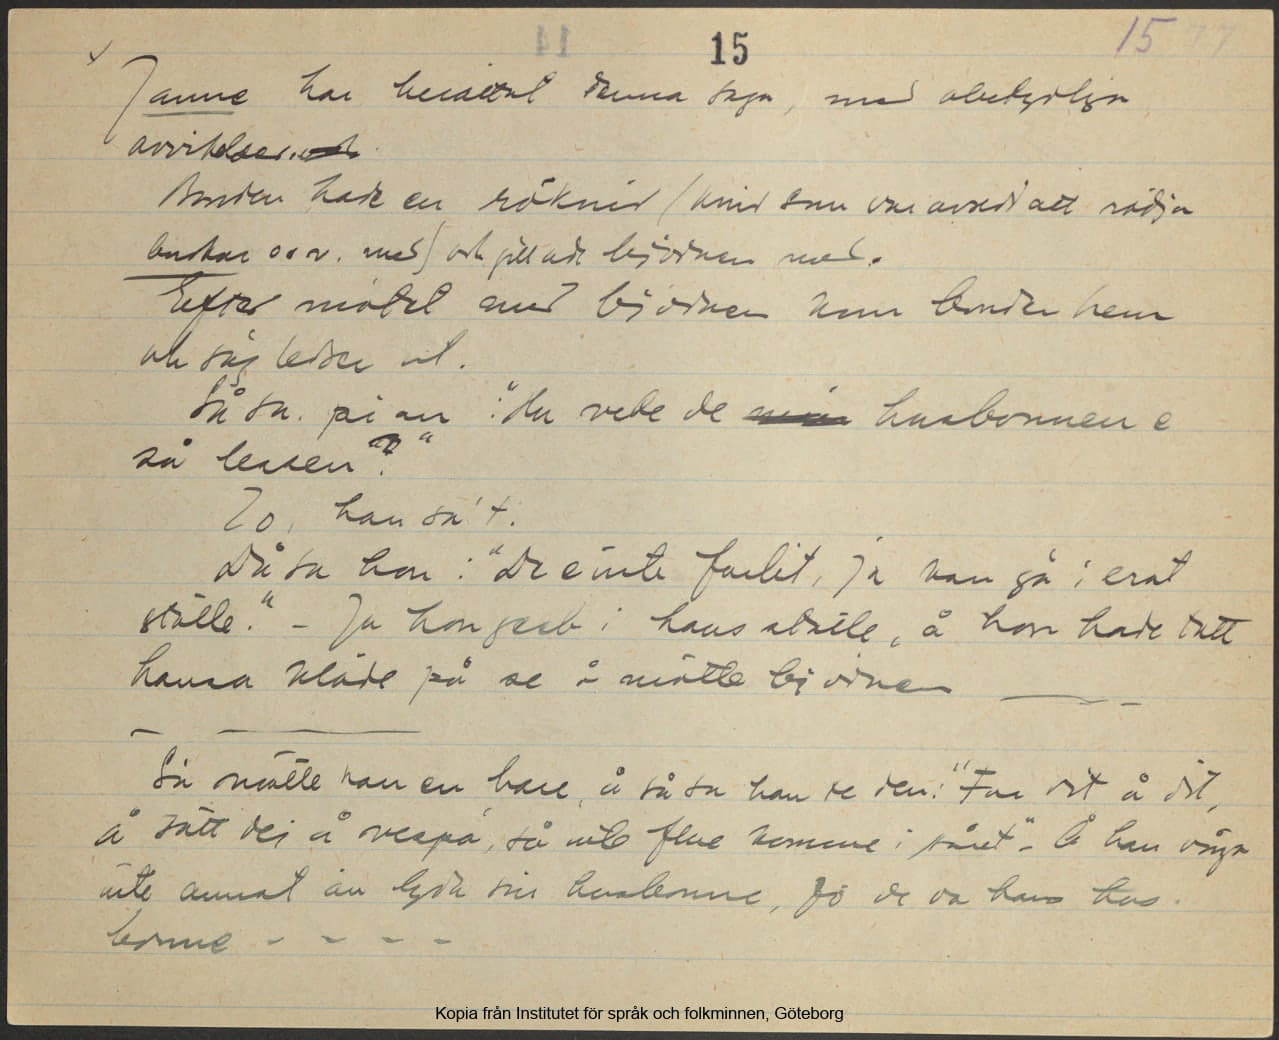 15
15
Janne har berättat denna saga, med obetydliga
avvikelser.
Bonden hade en röknif (knif som var avsedd att rödja
buskar o.s.v. med) och gillade björnen med.
Efter mötet med björnen kom bonden hem
och såg ledsen ut.
Så sa pi an: "Hu vede de husbonnen e
så lessen?"
Jo, han sa't.
Då sa hon: "De e inte farlit, ja kan gå i erat
ställe." – Ja hon geck i hans ställe, å hon hade tatt
hansa kläde på se å mötte björnen
Så mötte han en hare, å så sa han te den: "Far dit å dit,
å sätt dej å vespa, så inte flue komme i såret" – Å han våga
inte annat än lyda sin husbonne, fö de va hans hus-
bonne - - - -
Kopia från Institutet för språk och folkminnen, Göteborg